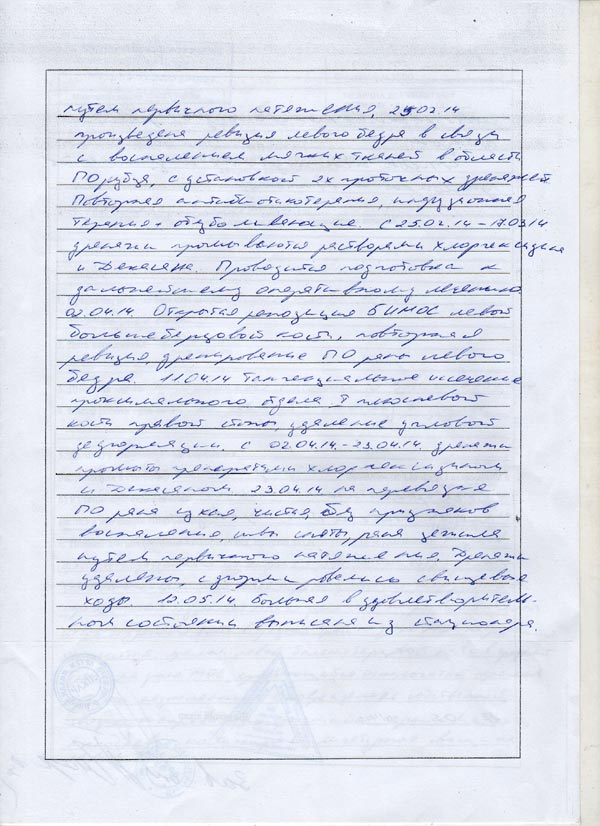 путем первичного натяжения, 25.02.14
произведена ревизия левого бедра в связи
с воспалением мягких тканей в области
ПО рубца, с установкой 2х проточных дренажей.
Повторная антибиотикотерапия, инфузионная
терапия, обезболивающие. С 25.02.14-17.03.14
дренажи промываются растворами хлоргексидина
и Декасана. Проводится подготовка к
дальнейшему оперативному лечению.
02.04.14. Открытая репозиция БИМОС левой
большеберцовой кости, повторная
ревизия, дренирование ПО раны левого
бедра. 11.04.14 Тангенциальное иссечение
проксимального отдела I плюсневой
кости правой стопы, удаление угловой
деформации. С 02.04.14.-23.04.14. дренажи
промыты препаратами хлоргексидином
и Декасаном. 23.04.14 на перевязке
ПО рана сухая, чистая, без признаков
воспаления, швы сняты, рана зажила
путем первичного натяжения. Дренажи
удалены, сформировались свищевые
ходы. 12.05.14. больная в удовлетворитель-
ном состоянии выписана из стационара.